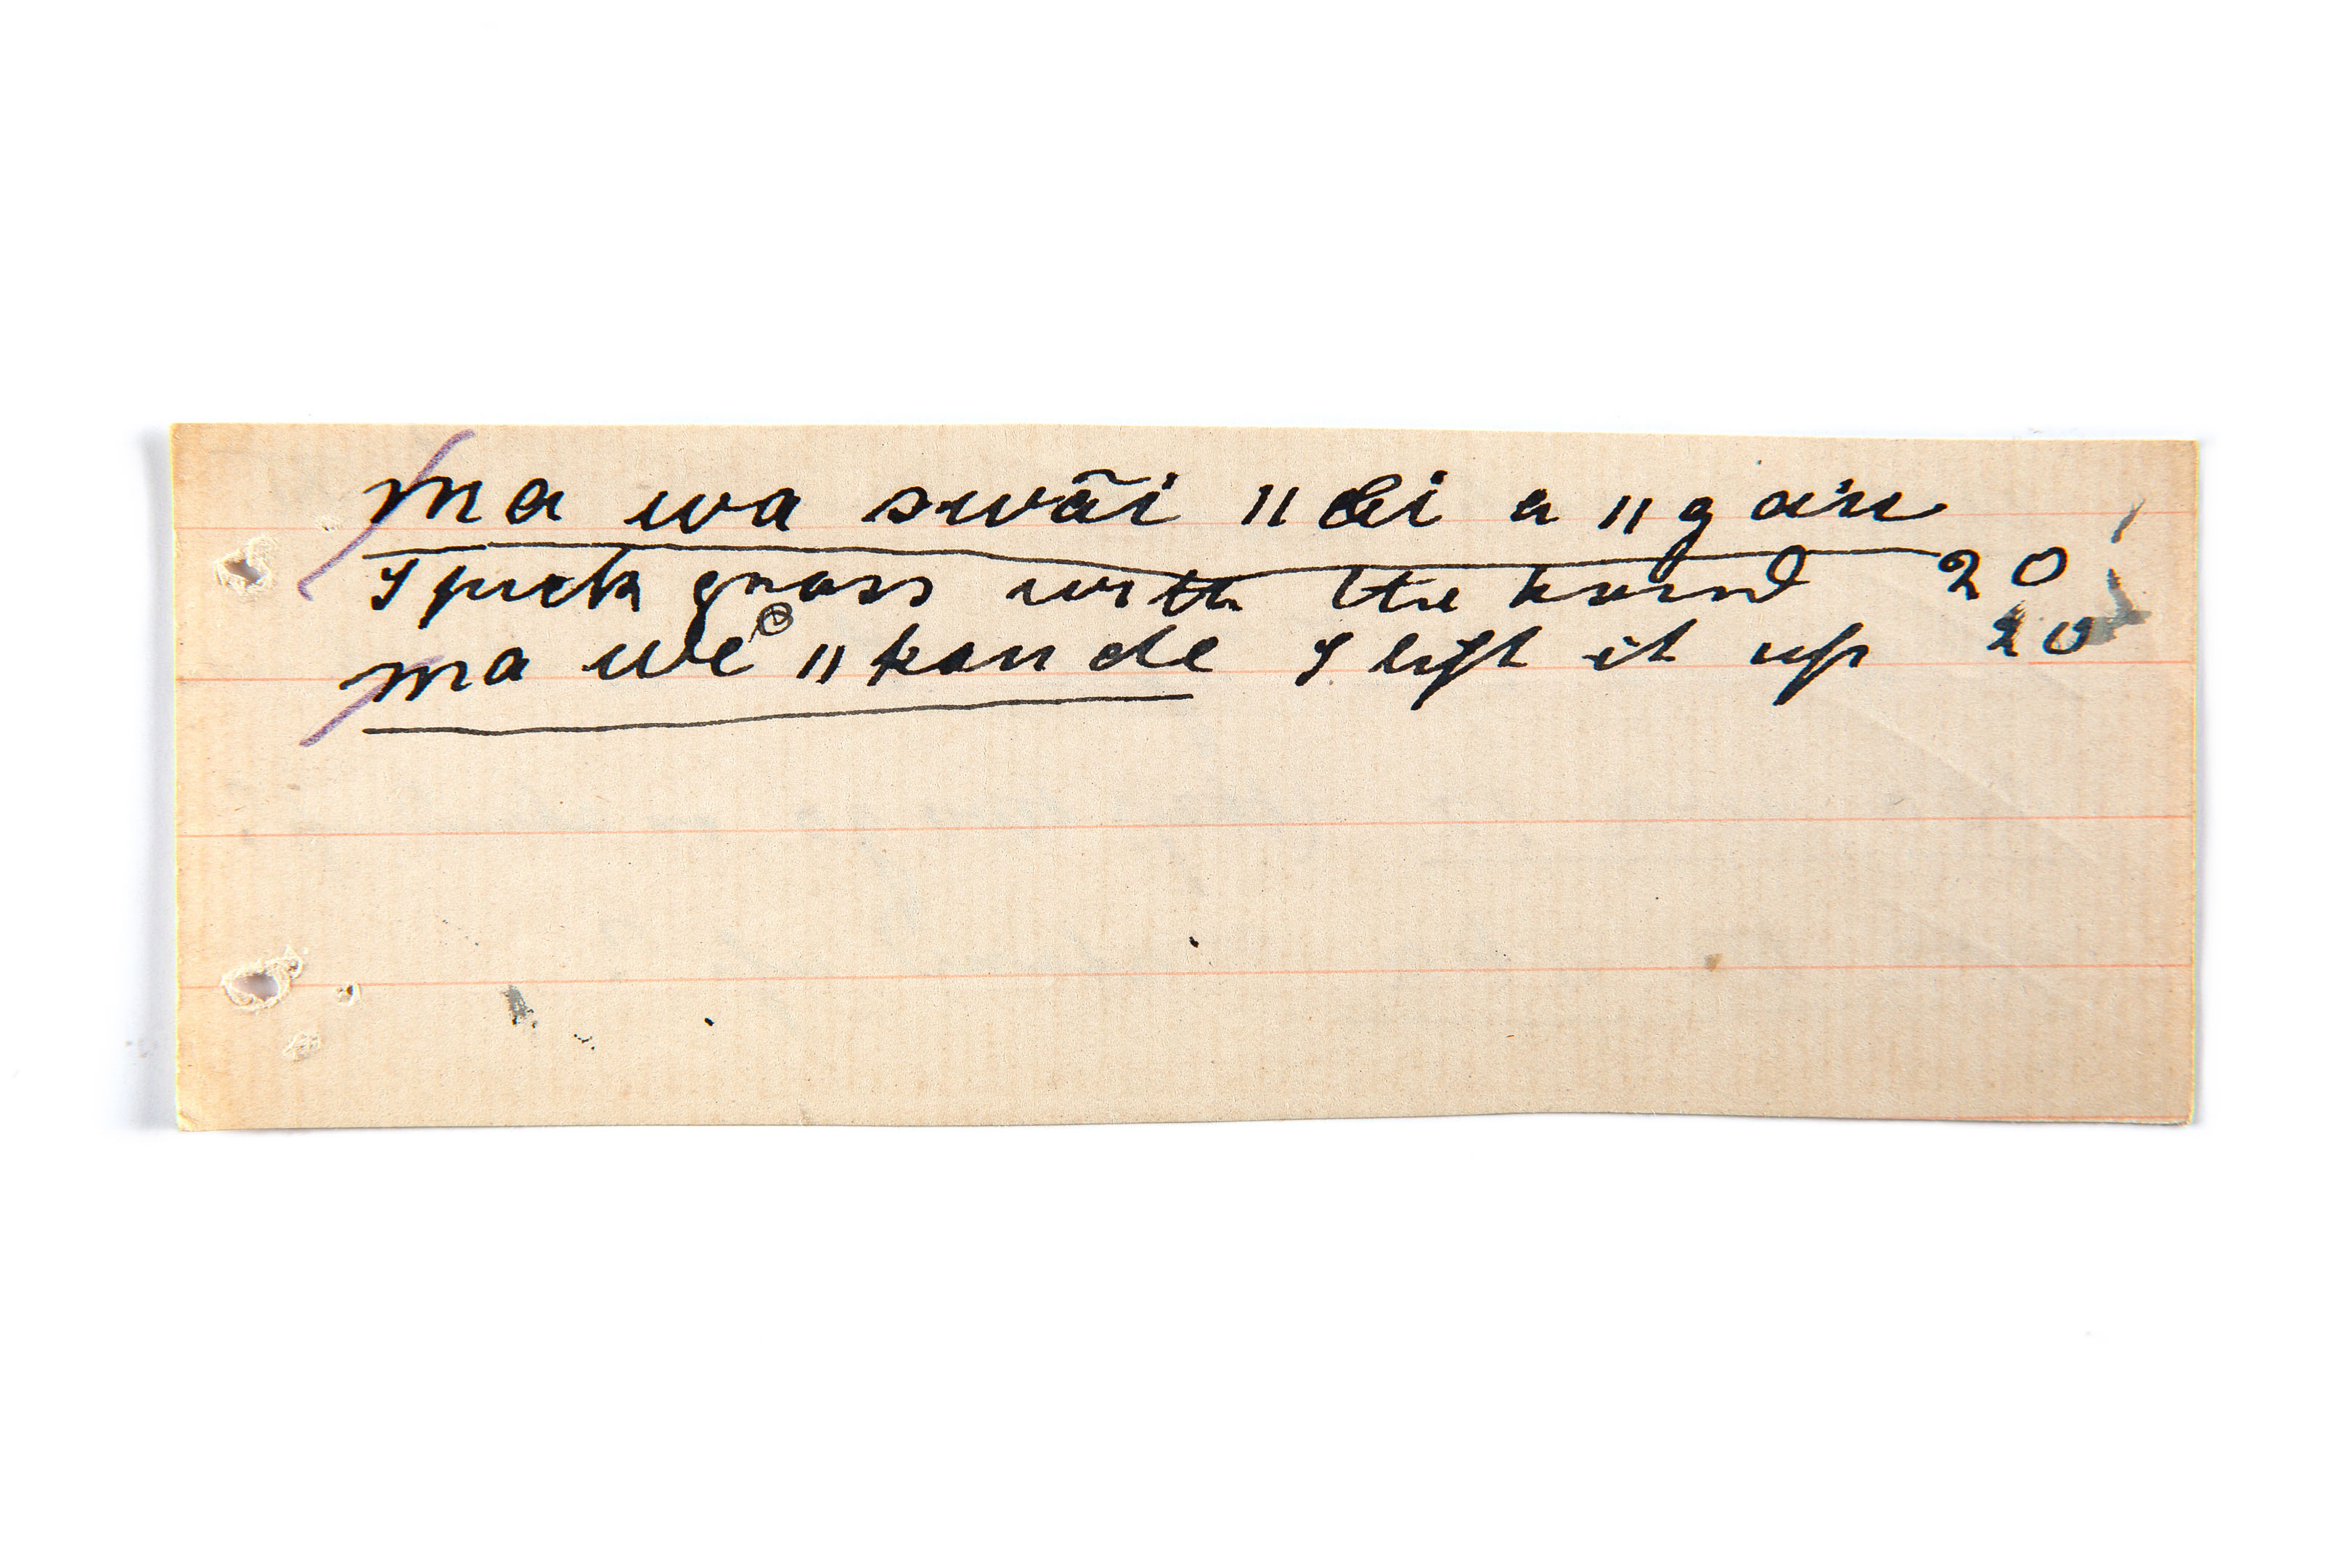 ma wa swāi ǁ dei a ǁ gain
I pick grass with the hand 20
ma we ǁ kan de I lift it up 20